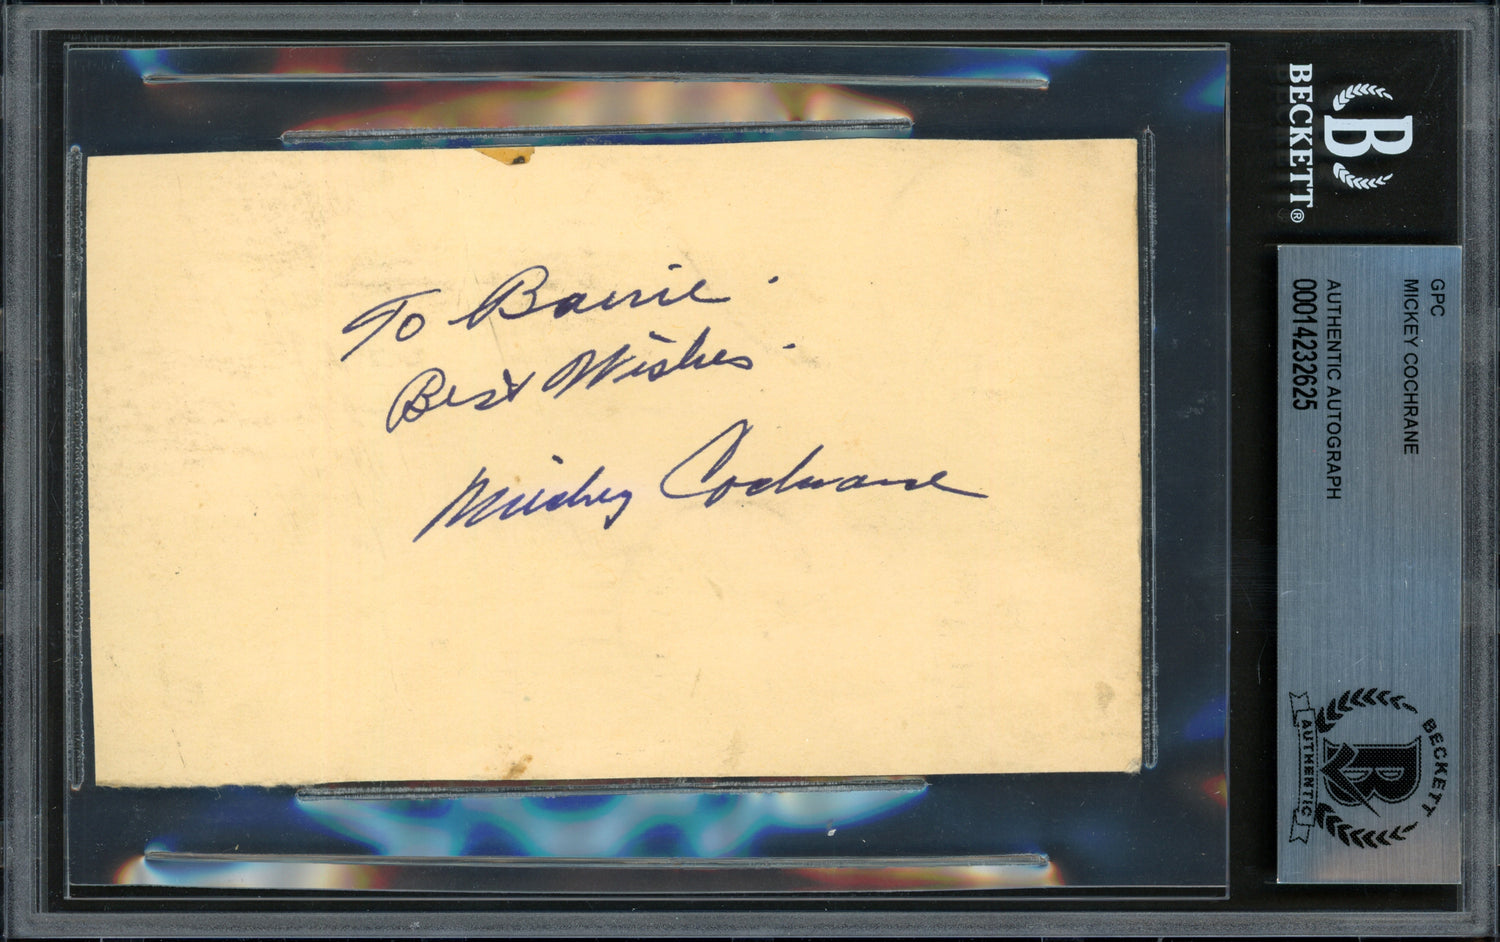 To Barrie.
Best Wishes.
Mickey Cochrane
BECKETT®
GPC
MICKEY COCHRANE
AUTHENTIC AUTOGRAPH
00014232625
B
BECKETT
AUTHENTIC